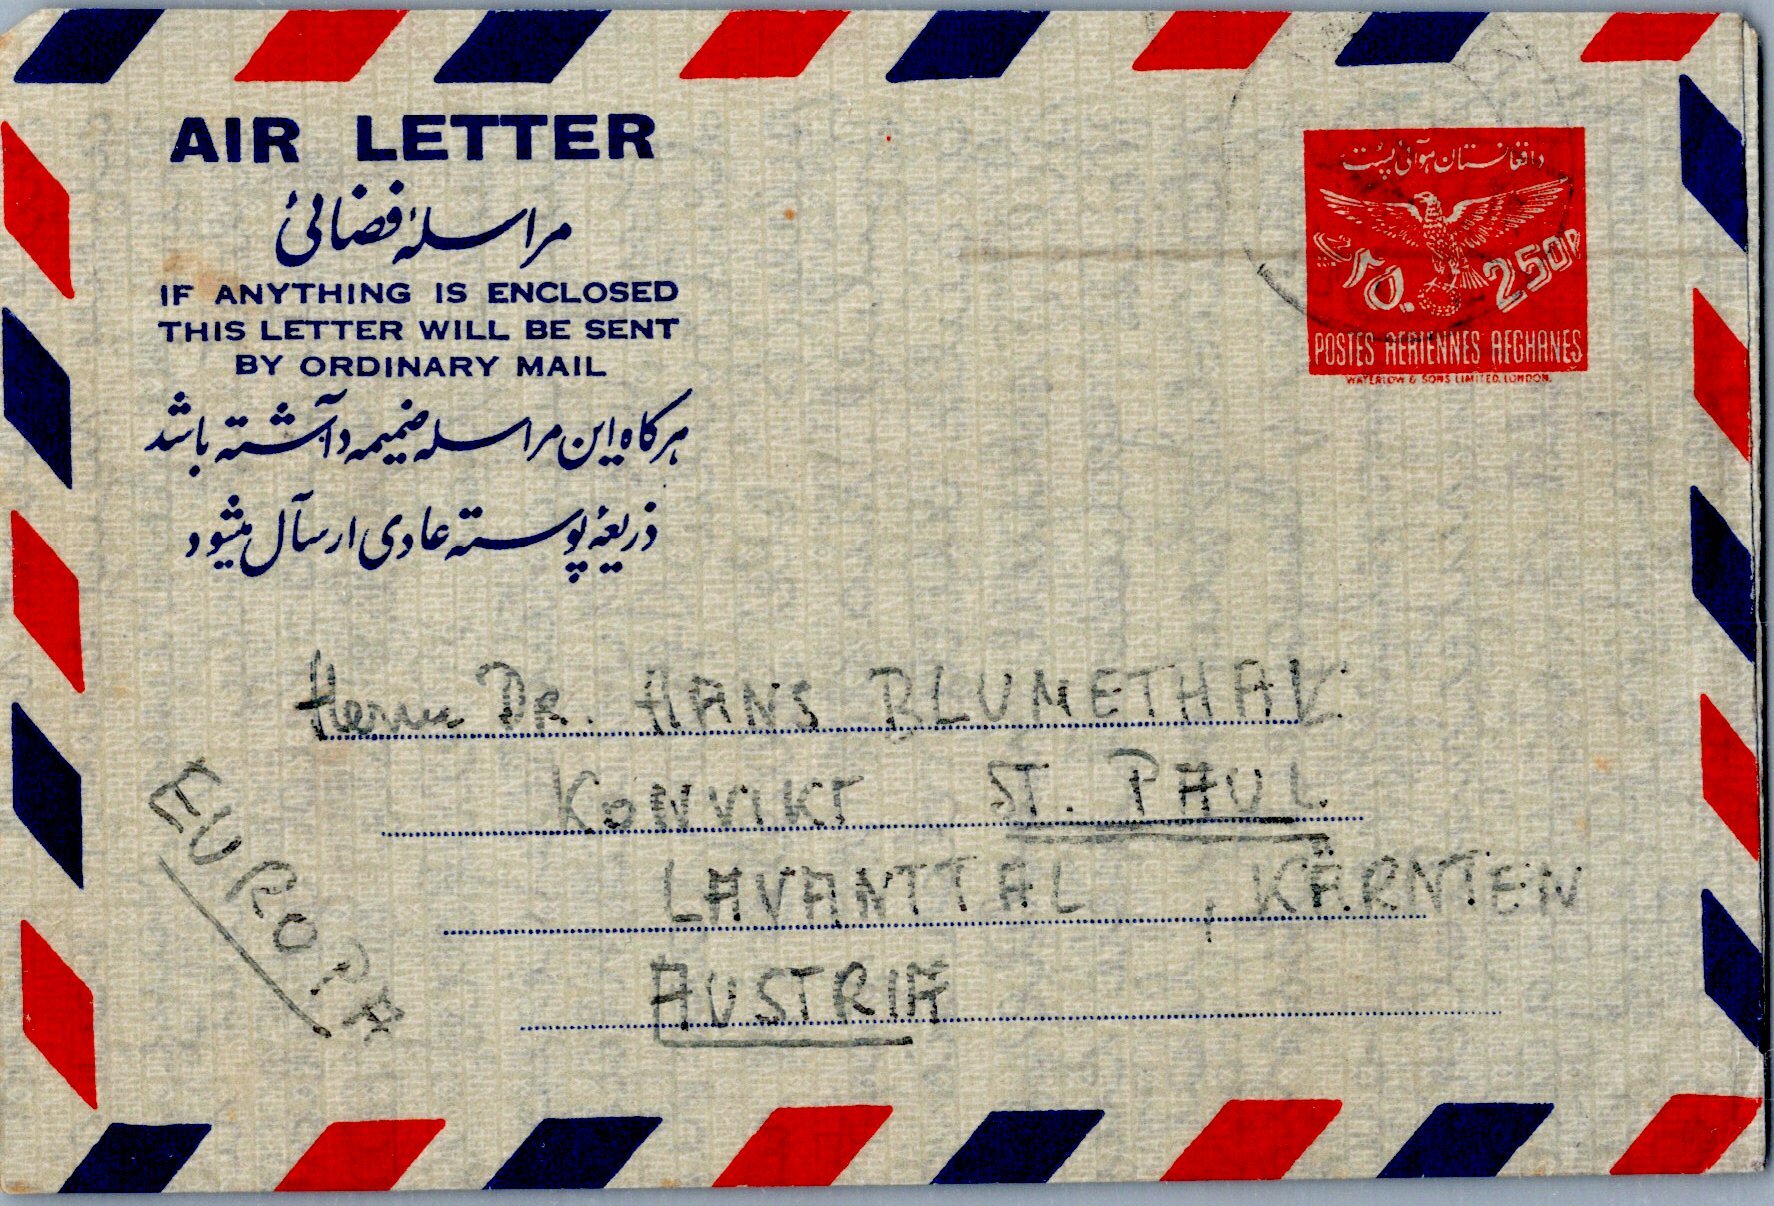 AIR LETTER
مراسلهٔ فضائی
IF ANYTHING IS ENCLOSED
THIS LETTER WILL BE SENT
BY ORDINARY MAIL
هرکاه این مراسله ضمیمه داشته باشد
ذریعهٔ پوسته عادی ارسال میشود
دافغانستان هوائی پست
۲۵۰
250P
POSTES AERIENNES AFGHANES
WATERLOW & SONS LIMITED, LONDON.
Herrn DR. HANS BLUMETHAL
KONVIKT ST. PAUL
LAVANTTAL, KÄRNTEN
AUSTRIA
EUROPA